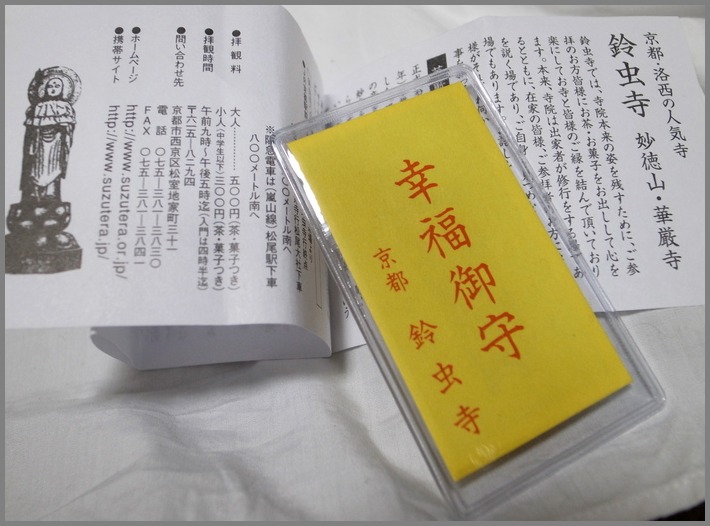 京都・洛西の人気寺
鈴虫寺 妙徳山・華厳寺
鈴虫寺では、寺院本来の姿を残すために、ご参
拝のお方皆様にお茶・お菓子をお出しして心を
楽にしてお寺と皆様のご縁を結んで頂いており
ます。本来、寺院は出家者が修行をする
るとともに、在家の皆様、ご参拝
を説く場であり、ご自身
場でもあります。
様が
幸福御守
京都 鈴虫寺
※阪急電車は(嵐山線)松尾駅下車
八〇〇メートル南へ
●拝観料
大人…………五〇〇円(茶・菓子つき)
小人(中学生以下)三〇〇円(茶・菓子つき)
●拝観時間
午前九時〜午後五時迄(入門は四時半迄)
●問い合わせ先
〒六一五―八二九四
京都市西京区松室地家町三十一
電話 〇七五―三八一―三八三〇
FAX 〇七五―三八一―三八四一
●ホームページ
http://www.suzutera.or.jp/
●携帯サイト
http://www.suzutera.jp/